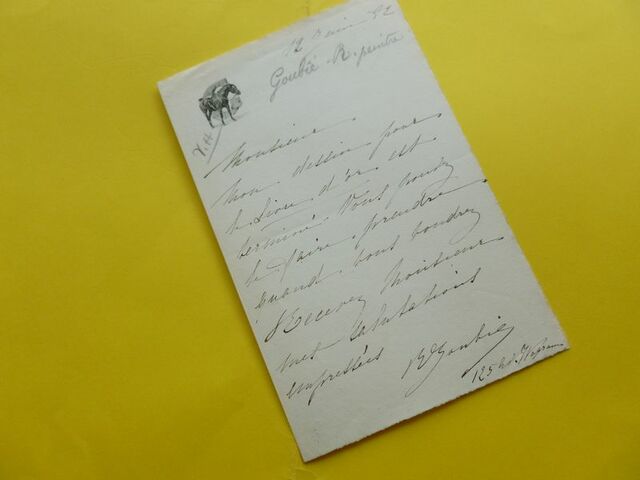 12 Juin 82
Goubie R. peintre
V.H
Monsieur
Mon dessin pour
le Livre d'or est
terminé. Vous pouvez
le faire prendre
quand vous voudrez
Recevez Monsieur
mes salutations
empressées RGoubie
125